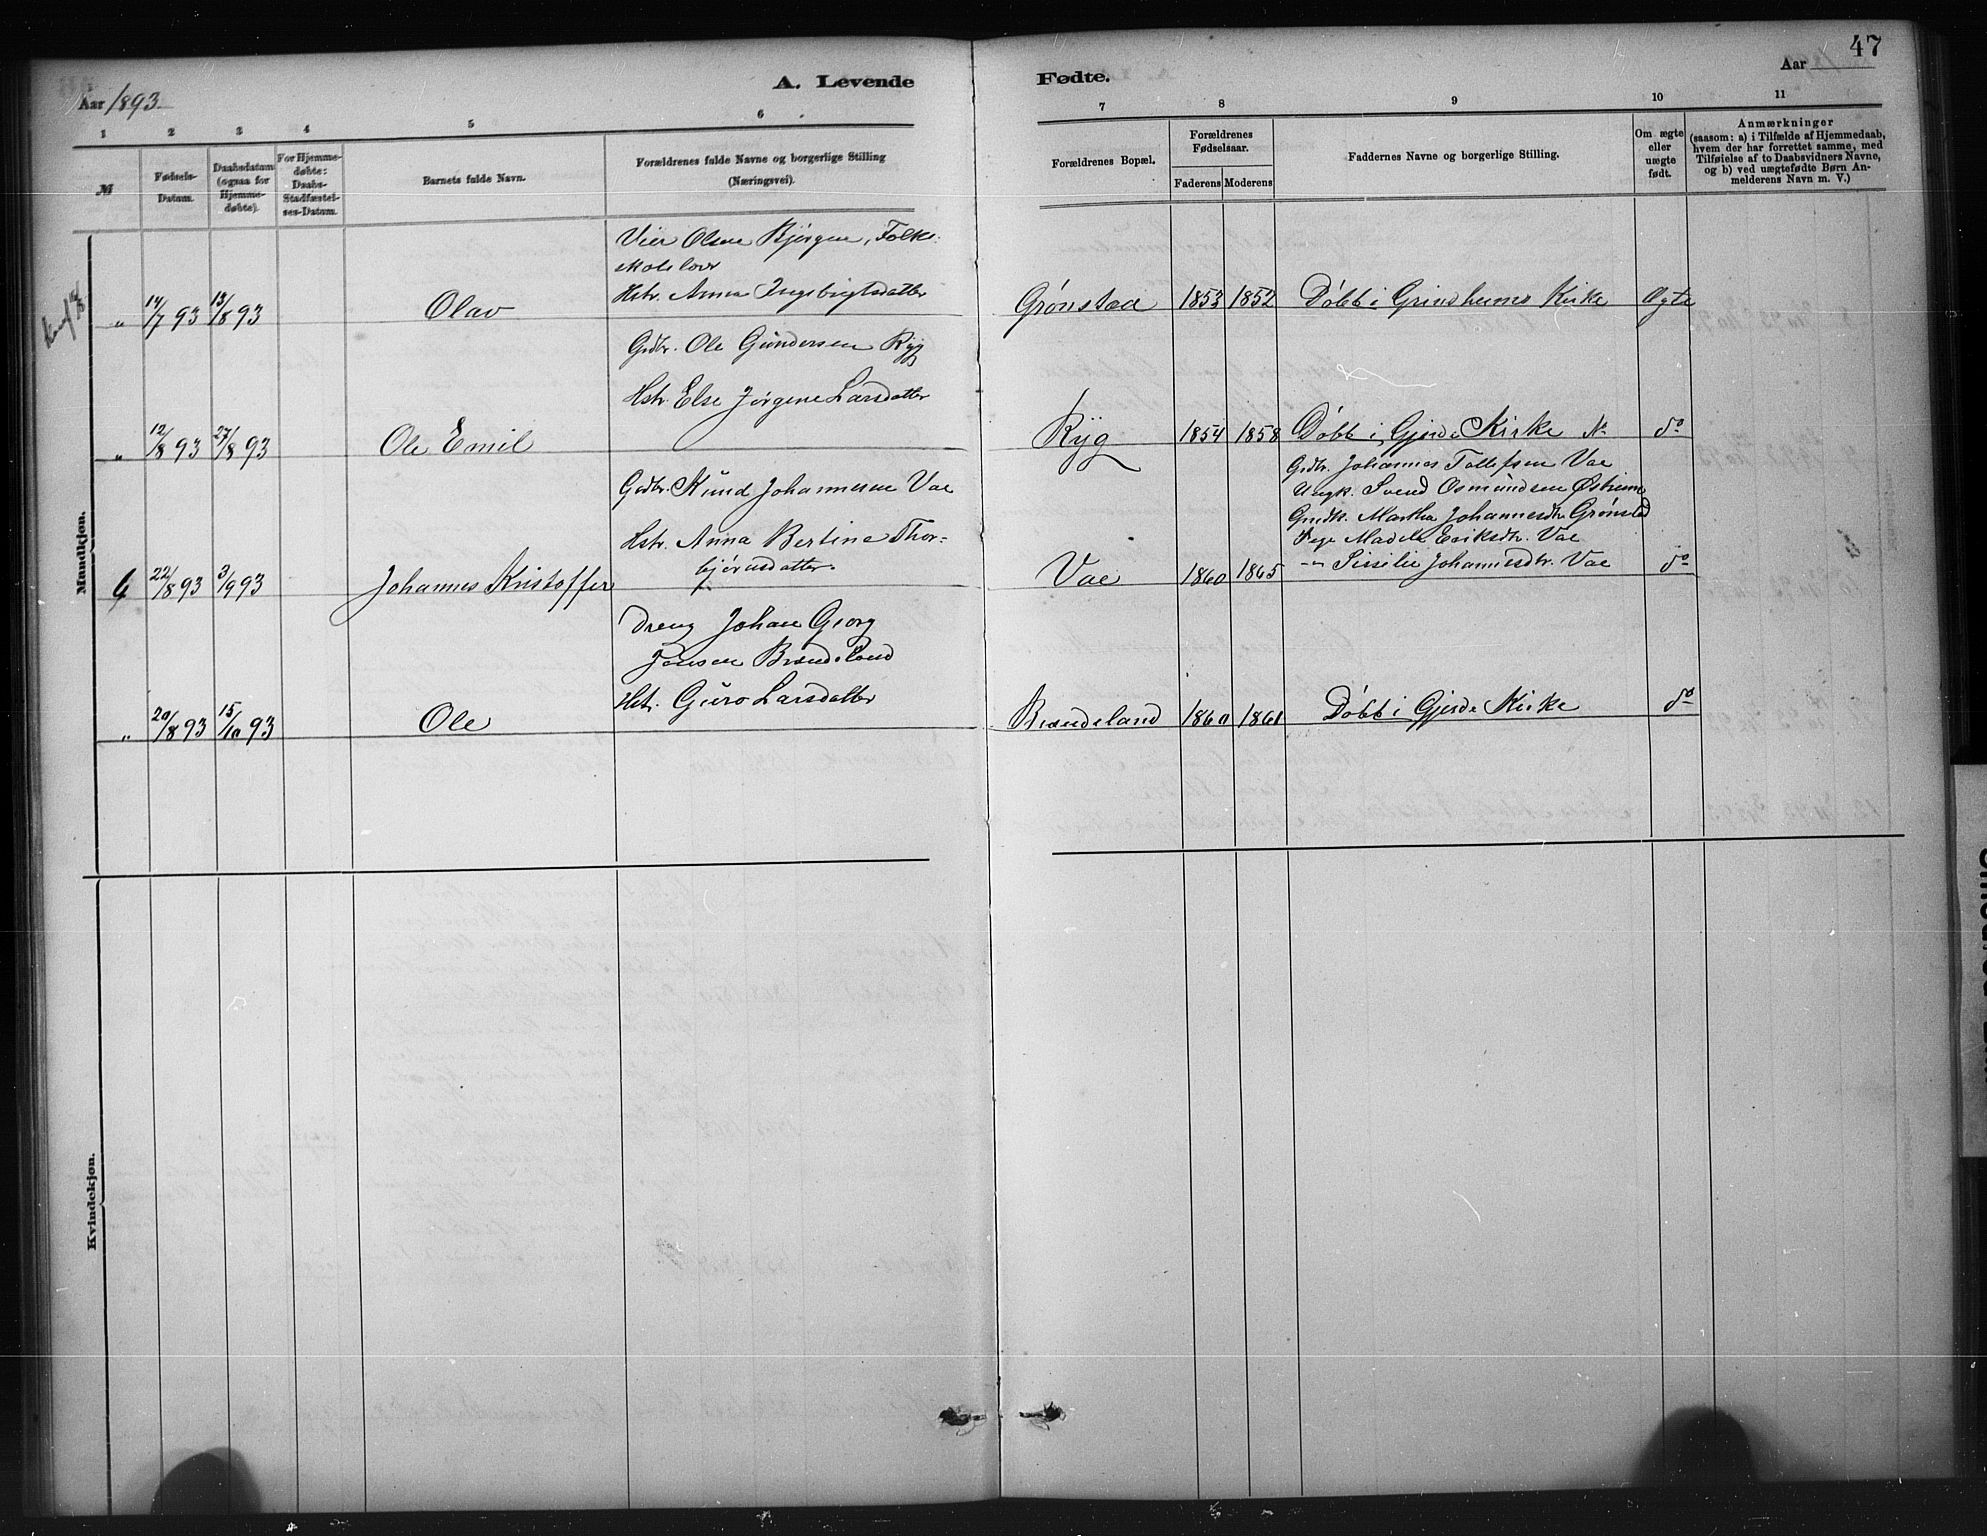 47
Aar 1893
A. Levende
Fødte.
Aar
1 2 3 4 5 6 7 8 9 10 11
№
Fødsels-
Datum.
Daabsdatum
(ogsaa for
Hjemme-
døbte).
For Hjemme-
døbte:
Daabs-
Stadfæstel-
ses-Datum.
Barnets fulde Navn.
Forældrenes fulde Navne og borgerlige Stilling
(Næringsvei).
Forældrenes Bopæl.
Forældrenes
Fødselsaar.
Faderens Moderens
Faddernes Navne og borgerlige Stilling.
Om ægte
eller
uægte
født.
Anmærkninger
(saasom: a) i Tilfælde af Hjemmedaab,
hvem der har forrettet samme, med
Tilføielse af to Daabsvidners Navne,
og b) ved uægtefødte Børn An-
melderens Navn m. V.)
Mandkjøn.
Vier Olsen Bjørgen, Folke-
skolelærer
Hstr. Anna Ingebrigtsdatter
" 14/7 93 13/8 93 Olav Grønstad 1853 1852 Døbt i Grindheims Kirke Ægte
Grdbr. Ole Gundersen Ryg
Hstr. Else Jørgene Larsdatter
" 12/8 93 27/8 93 Ole Emil Ryg 1854 1858 Døbt i Gjerde Kirke do
Grdbr. Knud Johannesen Vae
Hstr. Anna Bertine Thor-
bjørnsdatter
Grdbr. Johannes Tollefsen Vae
Ungk. Svend Osmundsen Østreim
Grmdk. Martha Johannesdtr. Grønstad
Pige Madele Eriksdtr. Vae
-"- Sissilie Johannesdtr. Vae
6 22/8 93 3/9 93 Johannes Kristoffer Vae 1860 1865 do
Dreng Johan Georg
Jonsen Brandeland
Hstr. Guro Larsdatter
" 20/8 93 15/10 93 Ole Brandeland 1860 1861 Døbt i Gjerde Kirke do
Kvindekjøn.